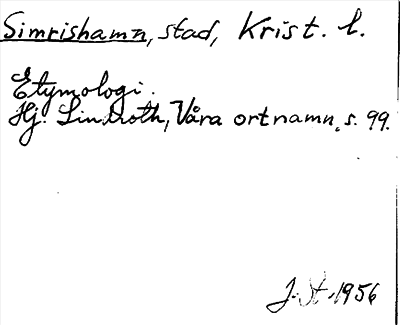 Simrishamn, stad, Krist. l.
Etymologi.
Hj. Lindroth, Våra ortnamn, s. 99.
J. St. 1956